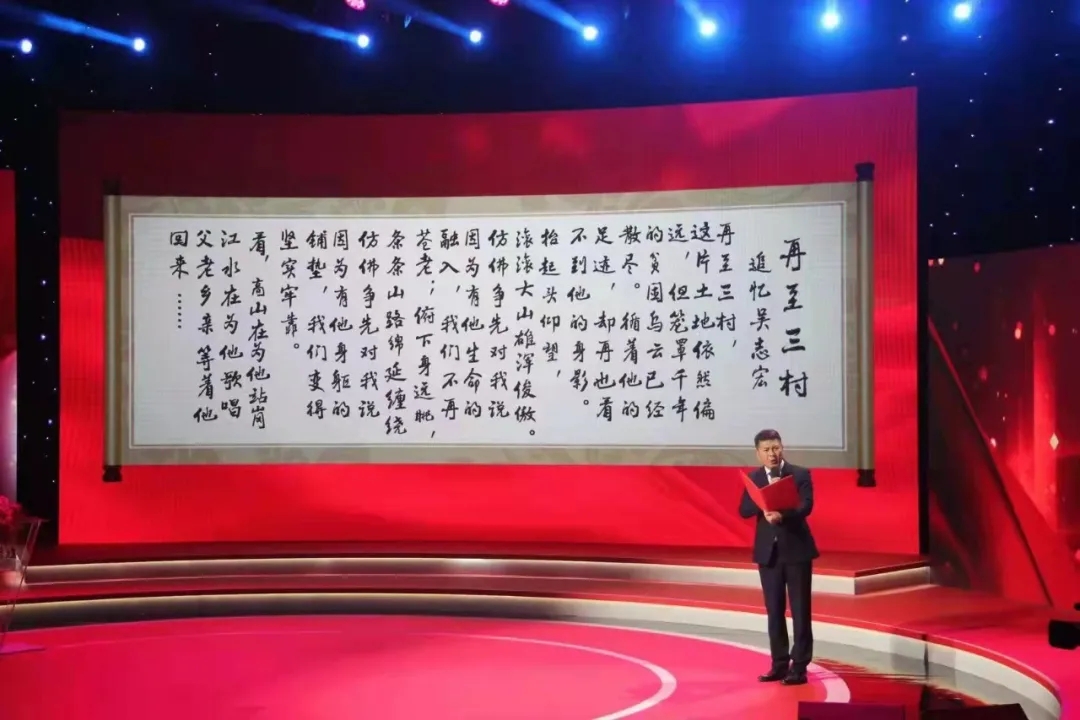 再至三村
追忆吴志宏
再至三村，
这片土地依然偏
远，但笼罩千年
的贫困乌云已经
散尽。循着他的
足迹，却再也看
不到他的身影。
抬起头仰望，
滚滚大山雄浑俊傲。
仿佛争先对我说
因为有他生命的
融入，我们不再
苍老；俯下身远眺，
条条山路绵延缠绕
仿佛争先对我说
因为有他身躯的
铺垫，我们变得
坚实牢靠。
看，高山在为他站岗
江水在为他歌唱
父老乡亲等着他
回来……